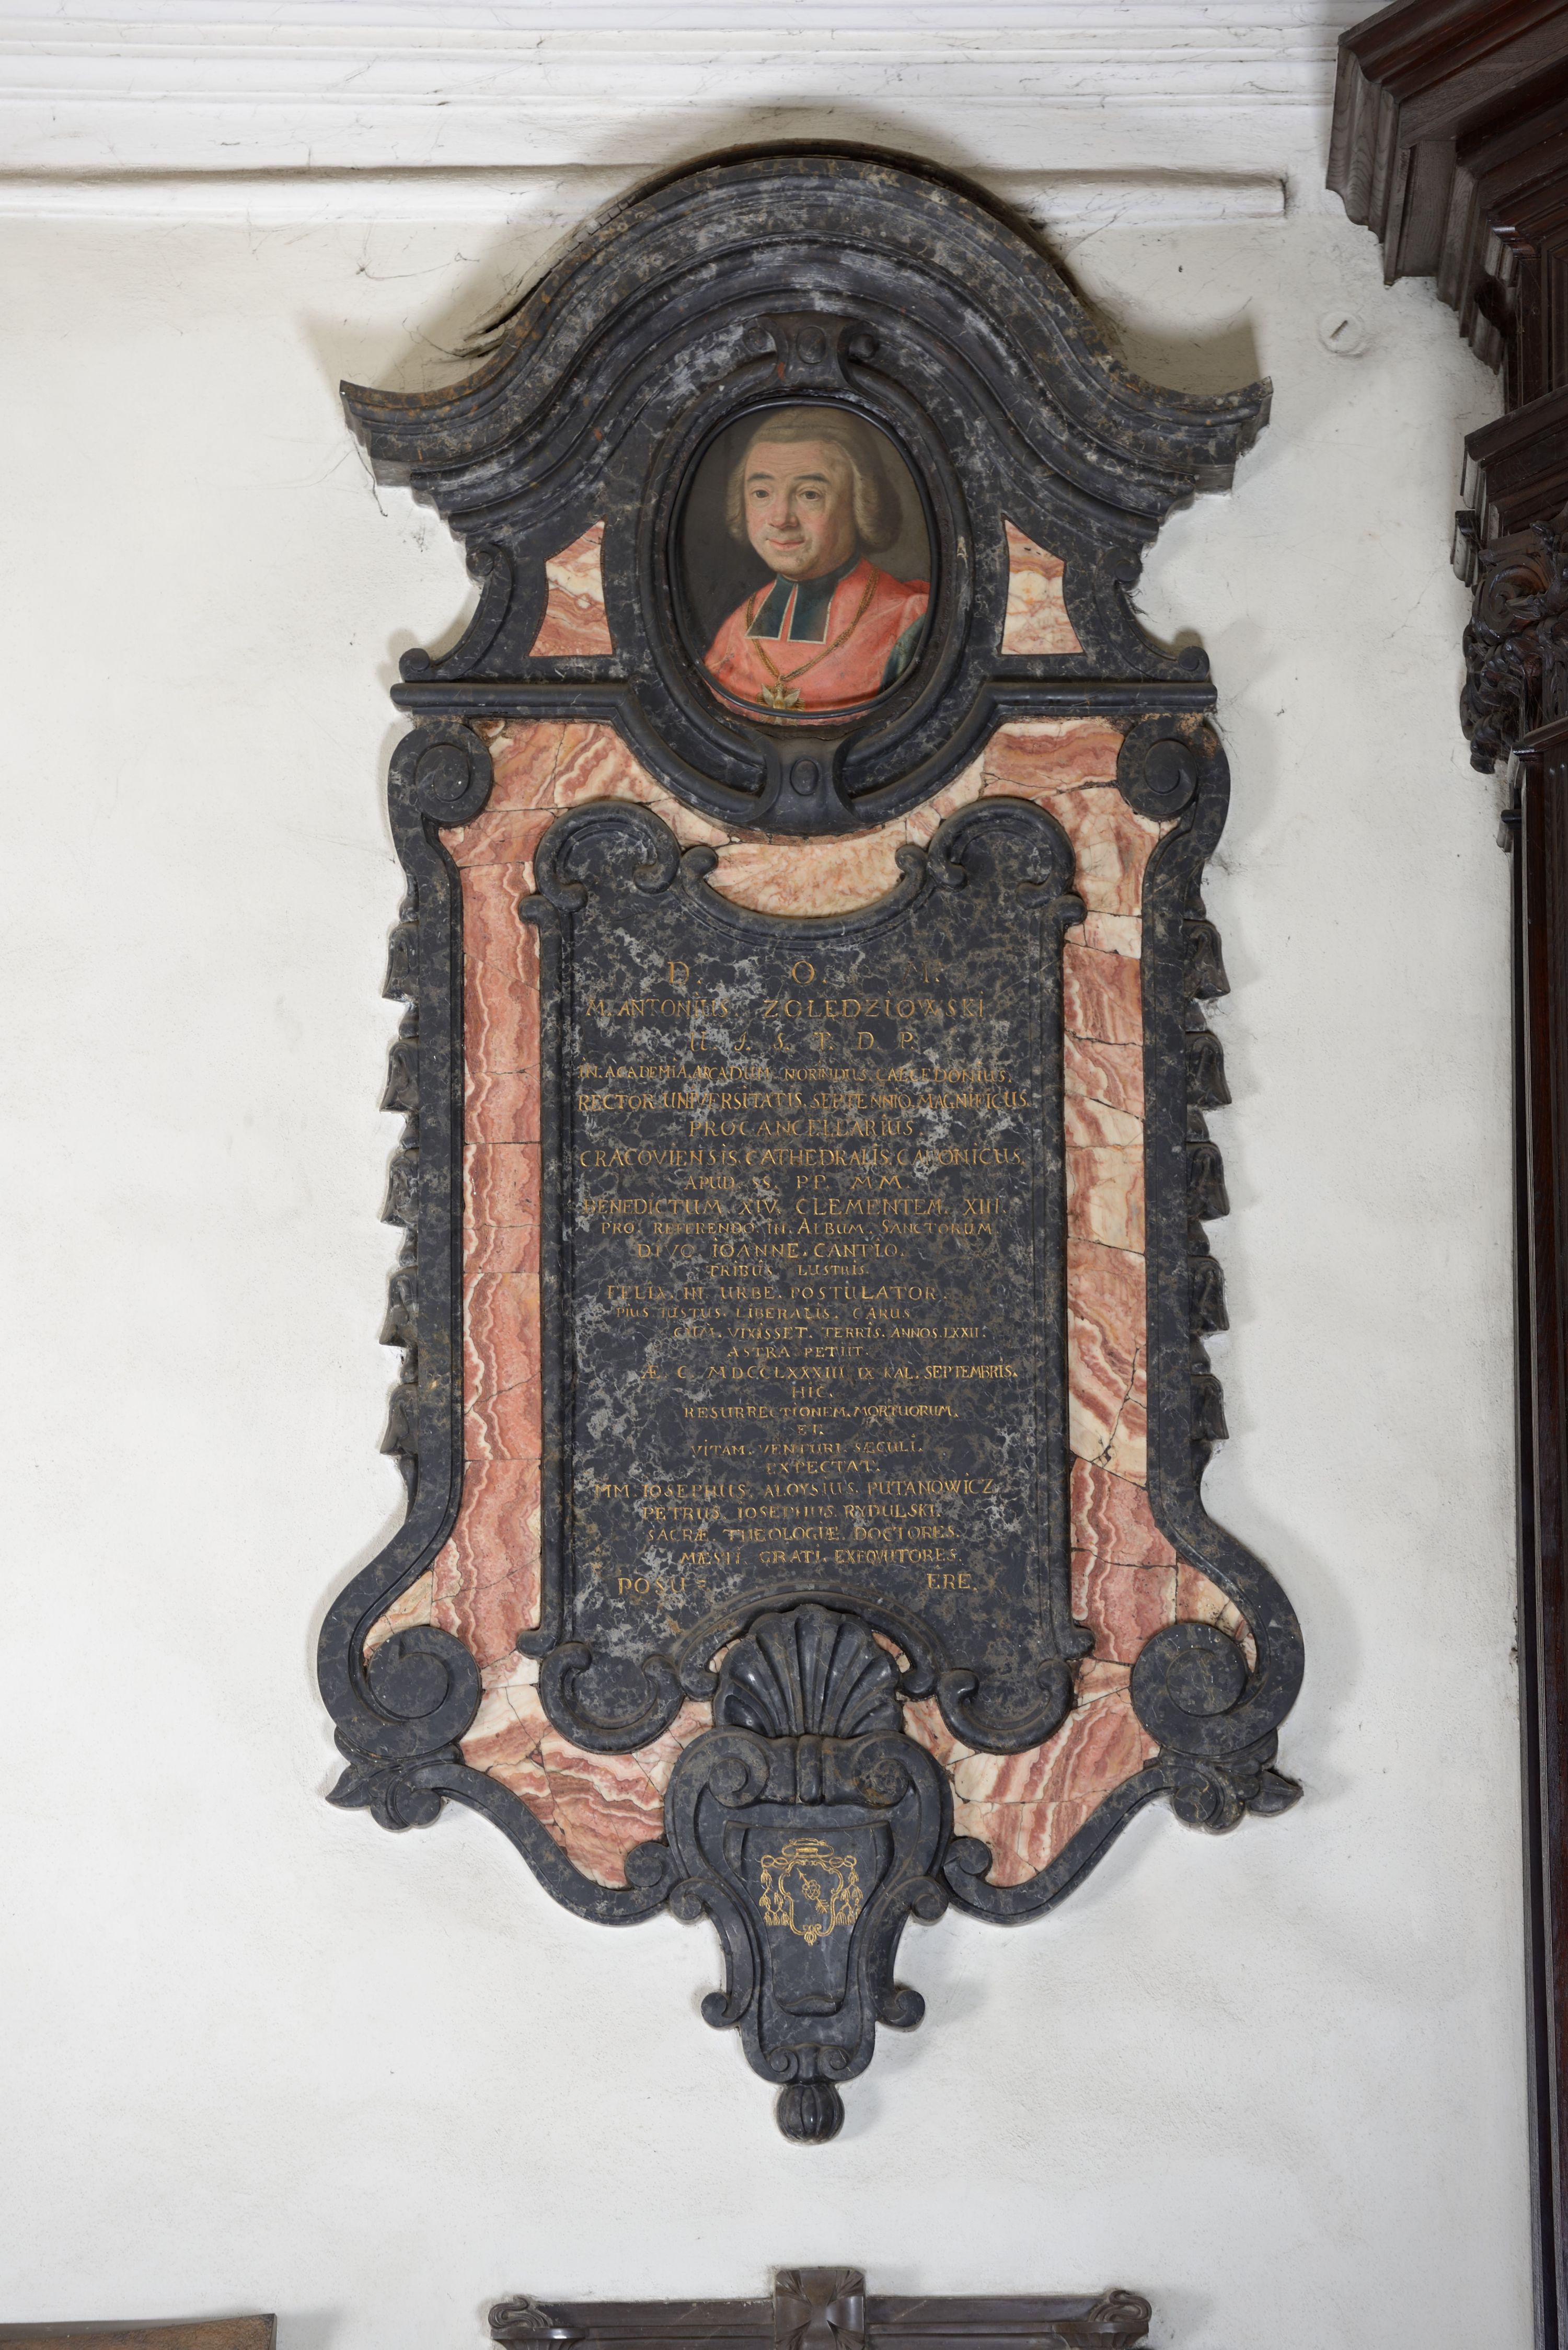 D. O. M.
M. ANTONIUS ZOLĘDZIOWSKI
U. J. S. T. D. P.
IN. ACADEMIA. ARCADUM. NORBIDIUS. CALCEDONIUS.
RECTOR. UNIVERSITATIS. SEPTENNIO. MAGNIFICUS.
PROCANCELLARIUS.
CRACOVIENSIS. CATHEDRALIS. CANONICUS.
APUD. SS. PP. MM.
BENEDICTUM. XIV. CLEMENTEM. XIII.
PRO. REFERENDO. IN. ALBUM. SANCTORUM.
DIVO IOANNE. CANTIO.
TRIBUS. LUSTRIS.
FELIX. IN. URBE. POSTULATOR.
PIUS. IUSTUS. LIBERALIS. CARUS
CUM. VIXISSET. TERRIS. ANNOS. LXXII.
ASTRA PETIIT.
Æ. C. MDCCLXXXIII IX KAL. SEPTEMBRIS.
HIC.
RESURRECTIONEM. MORTUORUM.
ET.
VITAM. VENTURI. SÆCULI.
EXPECTAT.
MM. IOSEPHUS. ALOYSIUS. PUTANOWICZ
PETRUS. IOSEPHUS. RYDULSKI.
SACRÆ. THEOLOGIÆ. DOCTORES.
MÆSTI. GRATI. EXEQUUTORES.
POSU= ERE.